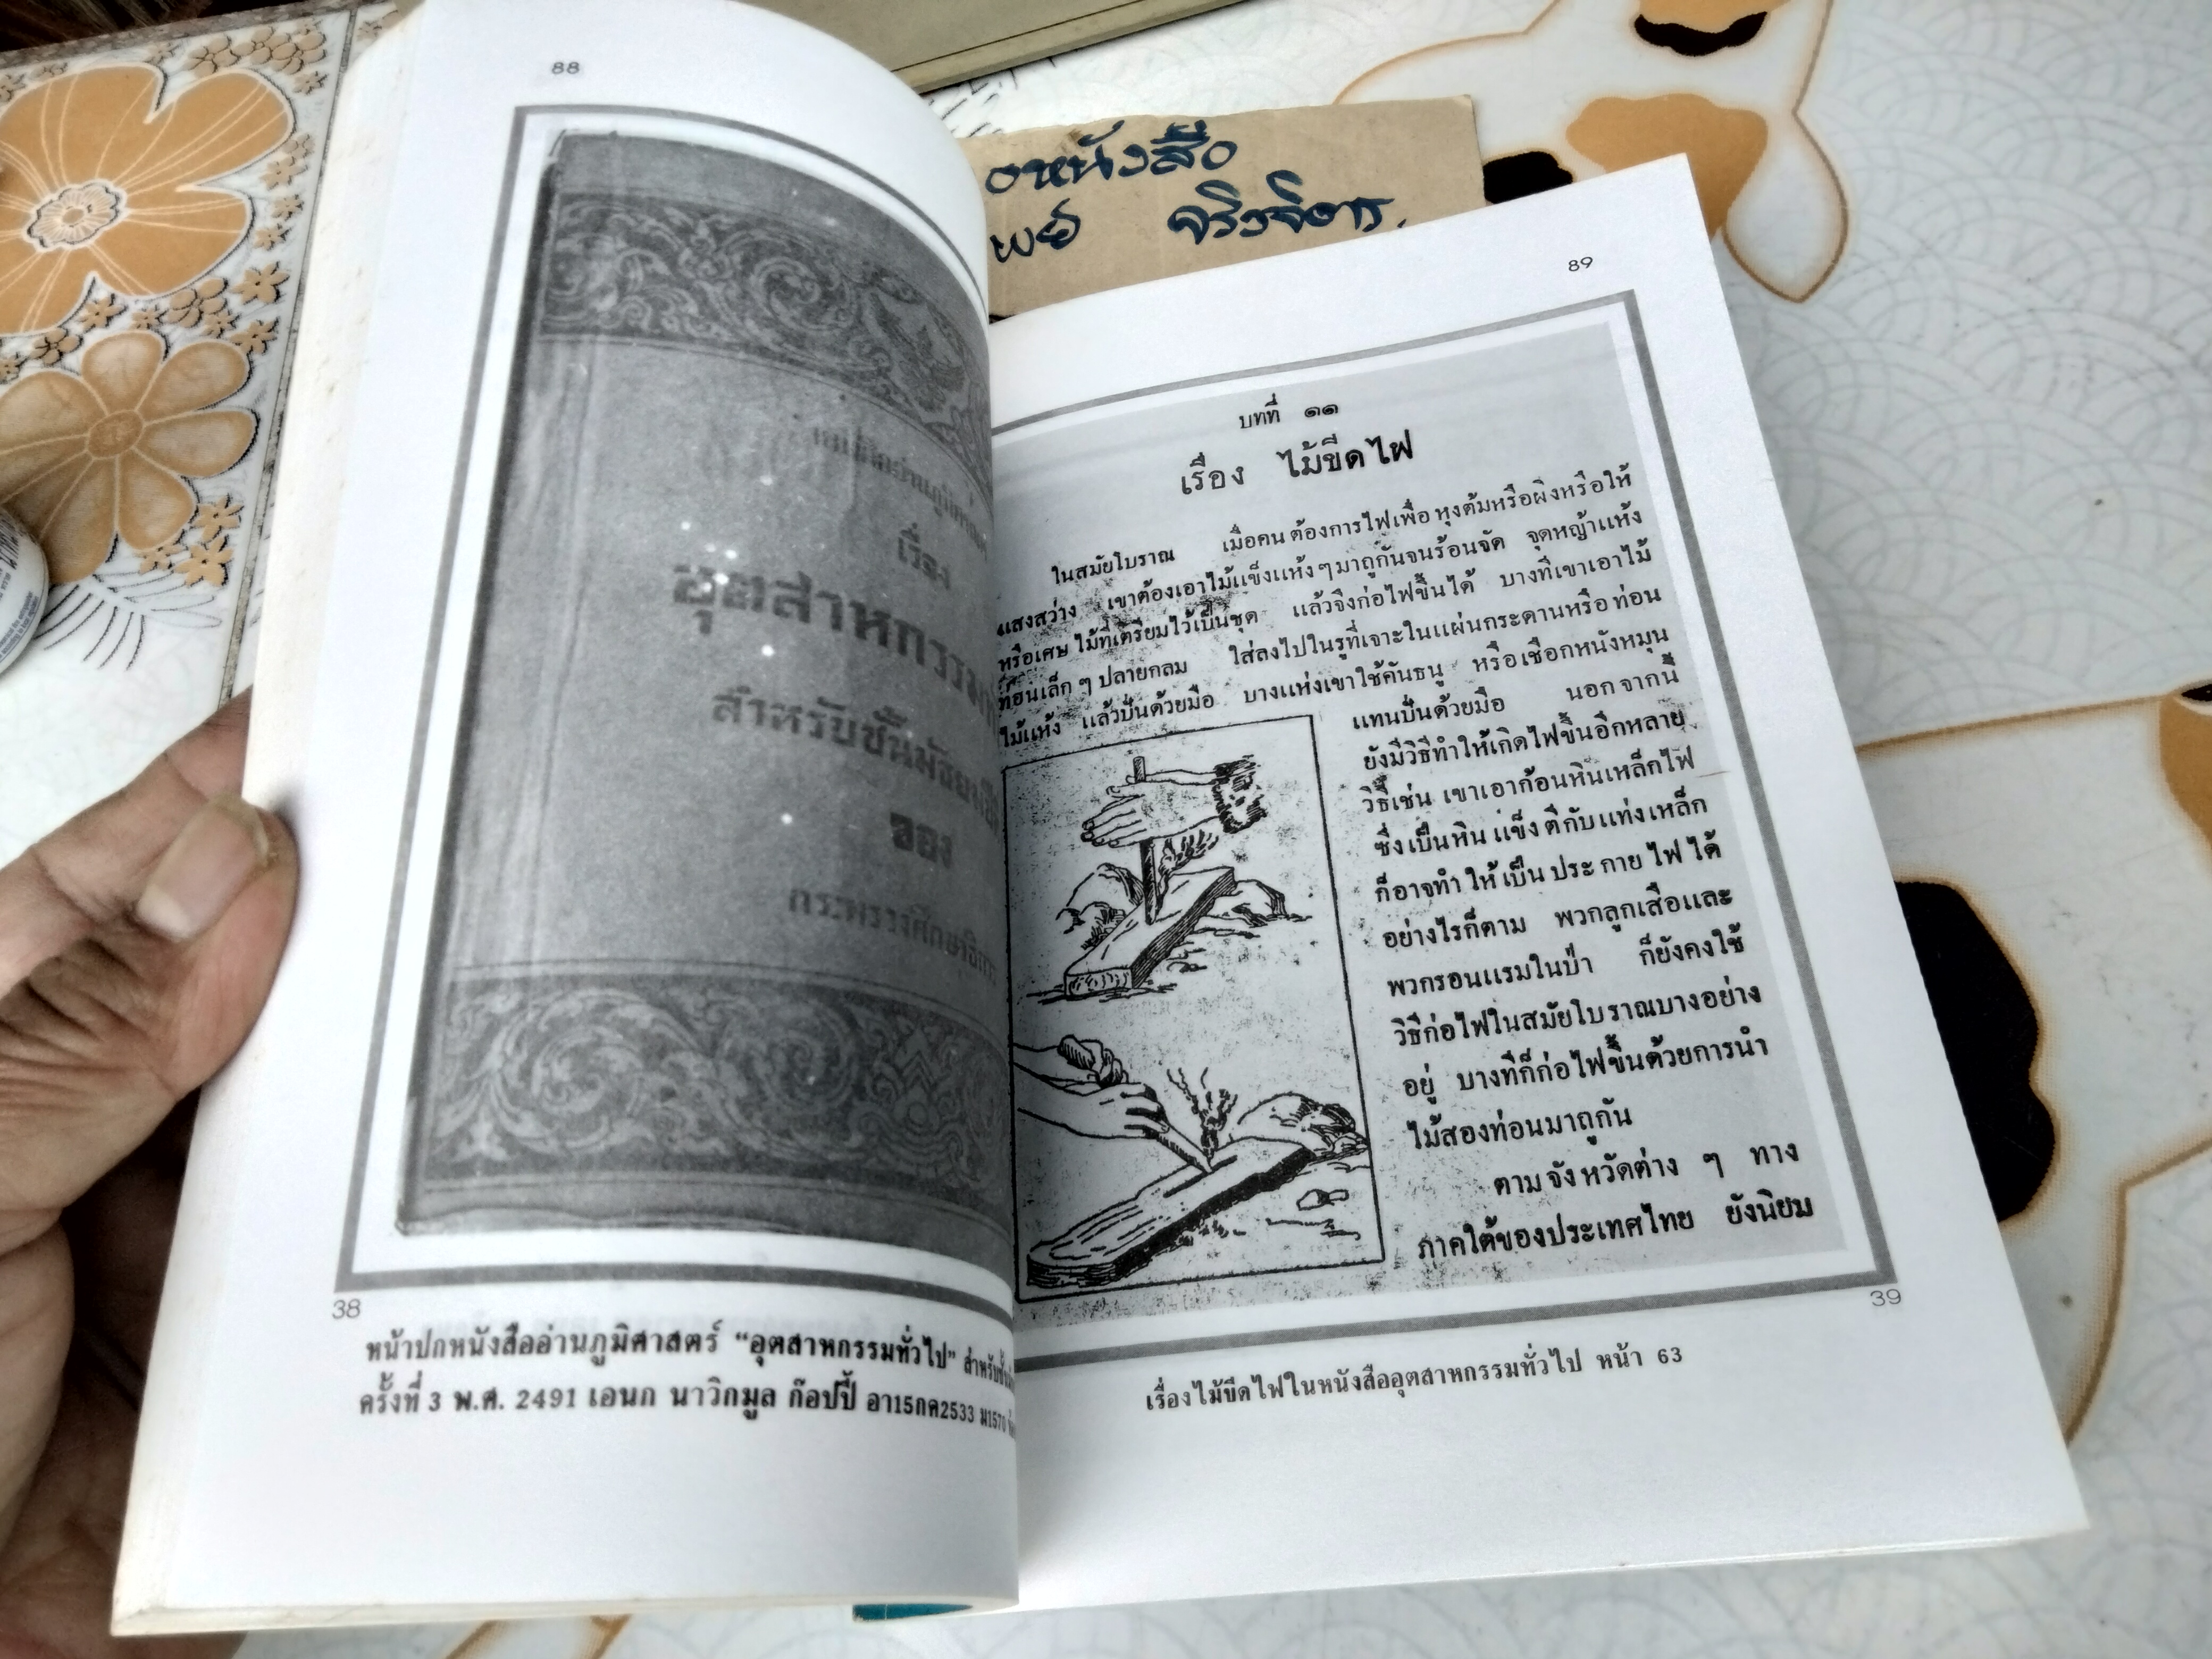 88
เรื่อง
อุตสาหกรรม
สำหรับชั้นมัธยมปี
ของ
กระทรวงศึกษาธิการ
38
หน้าปกหนังสืออ่านภูมิศาสตร์ “อุตสาหกรรมทั่วไป” สำหรับชั้น
ครั้งที่ 3 พ.ศ. 2491 เอนก นาวิกมูล ก๊อปปี้ อา15กค2533 ม1570
อหนังสือ
พย์ จริงจิตร.
89
บทที่ ๑๑
เรื่อง ไม้ขีดไฟ
ในสมัยโบราณ เมื่อคนต้องการไฟเพื่อหุงต้มหรือผิงหรือให้
แสงสว่าง เขาต้องเอาไม้แข็งแห้งๆมาถูกันจนร้อนจัด จุดหญ้าแห้ง
หรือเศษไม้ที่เตรียมไว้เป็นชุด แล้วจึงก่อไฟขึ้นได้ บางทีเขาเอาไม้
ท่อนเล็กๆปลายกลม ใส่ลงไปในรูที่เจาะในแผ่นกระดานหรือท่อน
ไม้แห้ง แล้วปั่นด้วยมือ บางแห่งเขาใช้คันธนู หรือเชือกหนังหมุน
แทนปั่นด้วยมือ นอกจากนี้
ยังมีวิธีทำให้เกิดไฟขึ้นอีกหลาย
วิธีเช่น เขาเอาก้อนหินเหล็กไฟ
ซึ่งเป็นหินแข็งตีกับแท่งเหล็ก
ก็อาจทำให้เป็นประกายไฟได้
อย่างไรก็ตาม พวกลูกเสือและ
พวกรอนแรมในป่า ก็ยังคงใช้
วิธีก่อไฟในสมัยโบราณบางอย่าง
อยู่ บางทีก็ก่อไฟขึ้นด้วยการนำ
ไม้สองท่อนมาถูกัน
ตามจังหวัดต่าง ๆ ทาง
ภาคใต้ของประเทศไทย ยังนิยม
39
เรื่องไม้ขีดไฟในหนังสืออุตสาหกรรมทั่วไป หน้า 63